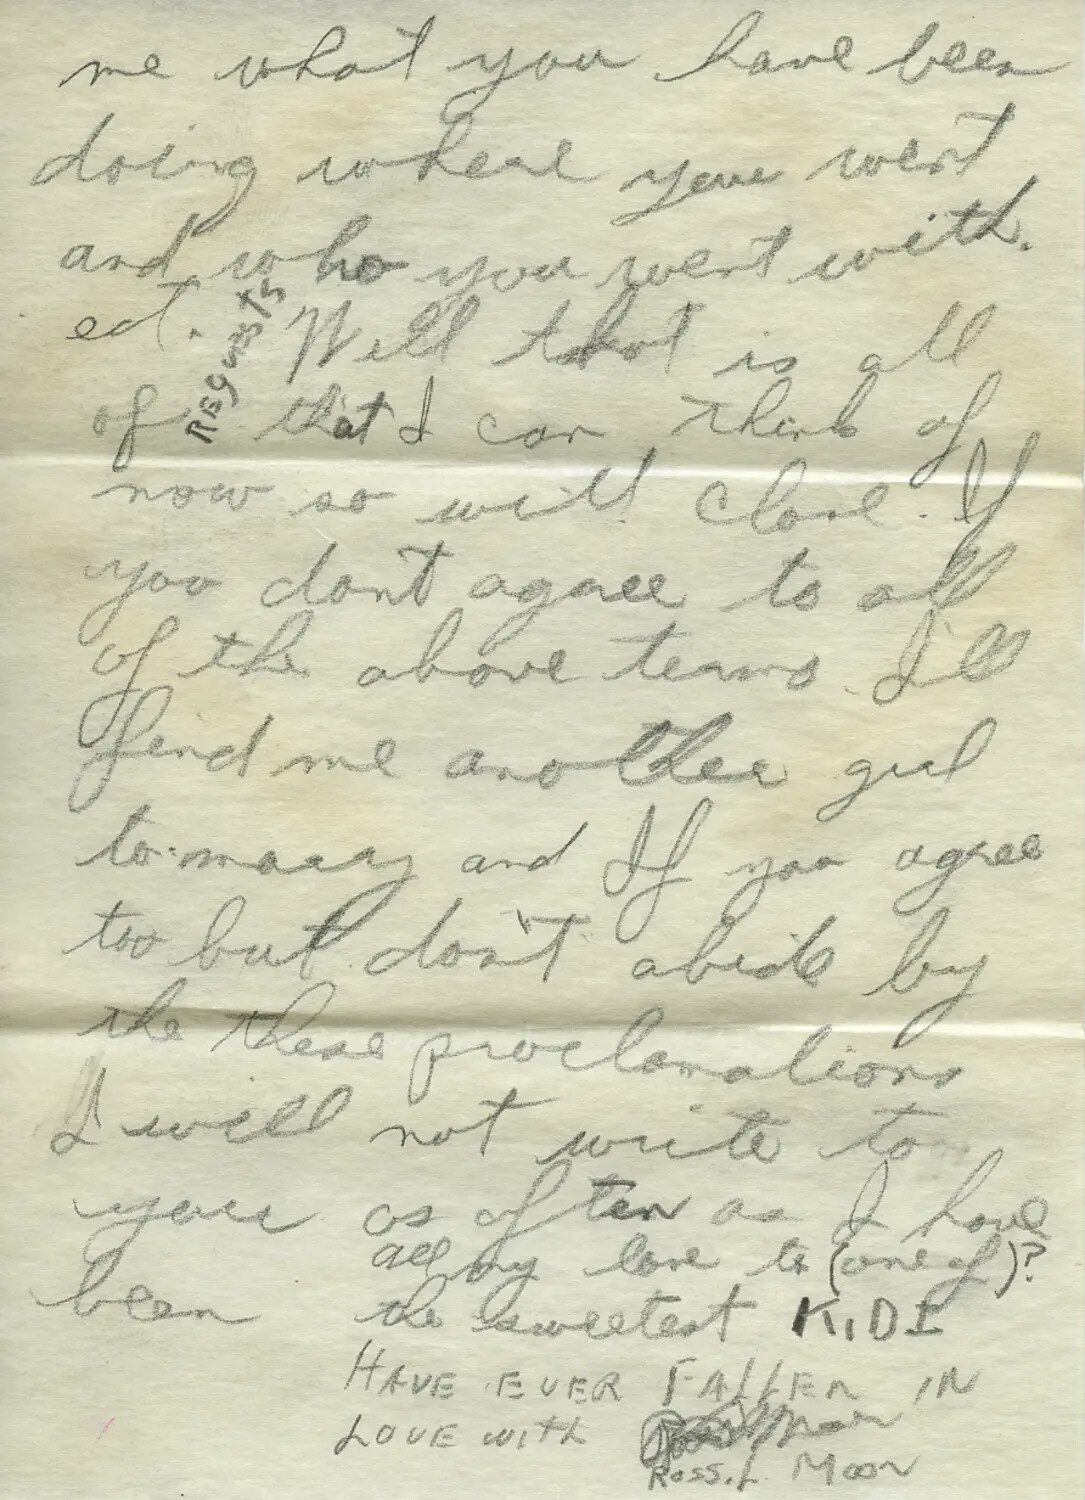 me what you have been
doing where you went
and who you went with.
ect. Well that is all
of REQUESTS that I can think of
now so will close. If
you don't agree to all
of the above terms I'll
find me another girl
to marry and If you agree
too but don't abide by
the these proclamations
I will not write to
you as often as I have
been all my love to (one of)?
the sweetest KID I
HAVE EVER FALLEN IN
LOVE WITH
ROSS. L Moon